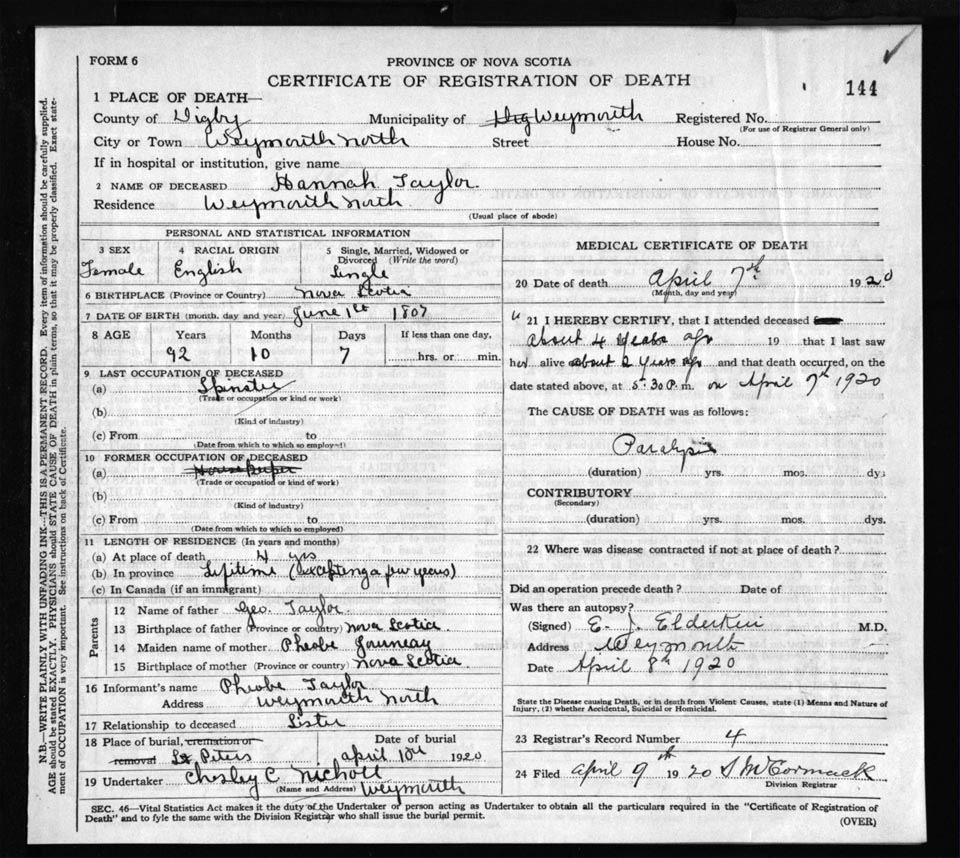 FORM 6
PROVINCE OF NOVA SCOTIA
CERTIFICATE OF REGISTRATION OF DEATH
144
1 PLACE OF DEATH—
County of Digby Municipality of Dig Weymouth Registered No.
(For use of Registrar General only)
City or Town Weymouth North Street House No.
If in hospital or institution, give name
2 NAME OF DECEASED Hannah Taylor.
Residence Weymouth North.
(Usual place of abode)
PERSONAL AND STATISTICAL INFORMATION
3 SEX 4 RACIAL ORIGIN 5 Single, Married, Widowed or
Divorced (Write the word)
Female English Single
6 BIRTHPLACE (Province or Country) Nova Scotia
7 DATE OF BIRTH (month, day and year) June 1st 1807
8 AGE Years Months Days If less than one day,
92 10 7 hrs. or min.
9 LAST OCCUPATION OF DECEASED
(a) Spinster
(Trade or occupation or kind or work)
(b)
(Kind of industry)
(c) From to
(Date from which to which so employed)
10 FORMER OCCUPATION OF DECEASED
(a) House Keeper
(Trade or occupation or kind of work)
(b)
(Kind of industry)
(c) From to
(Date from which to which so employed)
11 LENGTH OF RESIDENCE (In years and months)
(a) At place of death 4 yrs
(b) In province Lifetime (excepting a few years)
(c) In Canada (if an immigrant)
Parents
12 Name of father Geo. Taylor
13 Birthplace of father (Province or country) Nova Scotia.
14 Maiden name of mother Pheobe Jouneay
15 Birthplace of mother (Province or country) Nova Scotia
16 Informant's name Pheobe Taylor
Address Weymouth North
17 Relationship to deceased Sister
18 Place of burial, cremation or Date of burial
removal St. Peters April 10th 1920
19 Undertaker Chesley C Nichott
(Name and Address) Weymouth
MEDICAL CERTIFICATE OF DEATH
20 Date of death April 7th 1920
(Month, day and year)
21 I HEREBY CERTIFY, that I attended deceased
about 4 years ago 19 that I last saw
her alive about 2 years ago and that death occurred, on the
date stated above, at 5.30 P. m. on April 7th 1920
The CAUSE OF DEATH was as follows:
Paralysis
(duration) yrs. mos. dys
CONTRIBUTORY
(Secondary)
(duration) yrs. mos. dys.
22 Where was disease contracted if not at place of death?
Did an operation precede death? Date of
Was there an autopsy?
(Signed) E. J. Elderkin M.D.
Address Weymouth
Date April 8th 1920
State the Disease causing Death, or in death from Violent Causes, state (1) Means and Nature of
Injury, (2) whether Accidental, Suicidal or Homicidal.
23 Registrar's Record Number 4
24 Filed April 9th 1920 S McCormack
Division Registrar
SEC. 46—Vital Statistics Act makes it the duty of the Undertaker or person acting as Undertaker to obtain all the particulars required in the "Certificate of Registration of
Death" and to fyle the same with the Division Registrar who shall issue the burial permit.
(OVER)
N.B.—WRITE PLAINLY WITH UNFADING INK—THIS IS A PERMANENT RECORD. Every item of information should be carefully supplied.
AGE should be stated EXACTLY. PHYSICIANS should STATE CAUSE OF DEATH in plain terms, so that it may be properly classified. Exact state-
ment of OCCUPATION is very important. See instructions on back of Certificate.